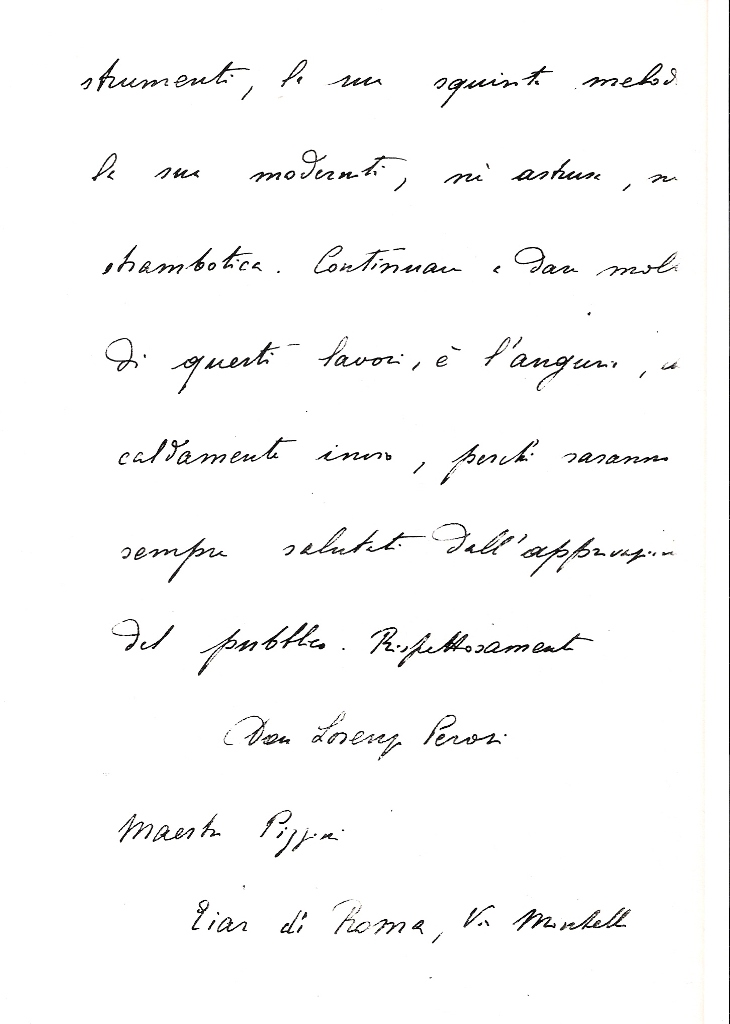 strumenti, la sua squisita melod
la sua modernità, nè astrusa, n
strambotica. Continuare a dare mol
di questi lavori, è l'augurio,
caldamente invio, perchè saranno
sempre salutati dall'approvazione
del pubblico. Rispettosamente
Don Lorenzo Perosi
Maestro Pizzini
Eiar di Roma, Via Montello